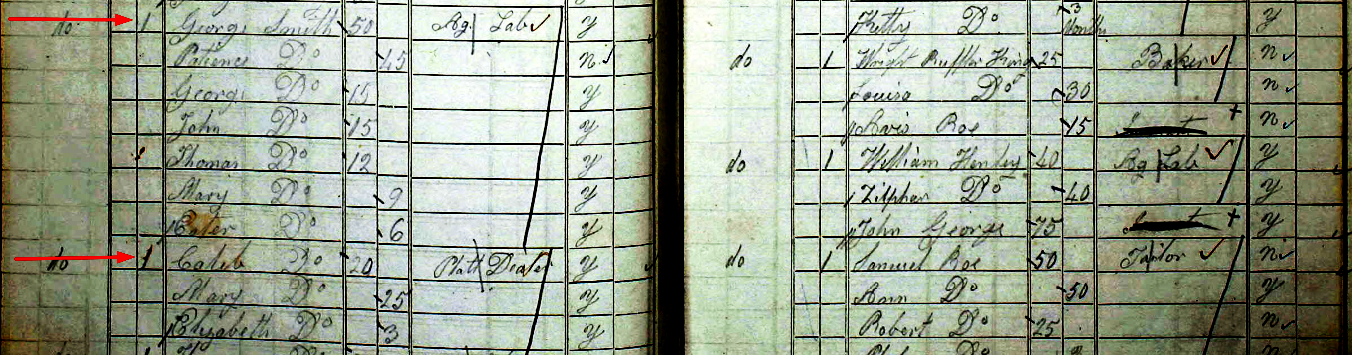 do 1 George Smith 50 Ag Lab y
Patience Do 45 n
George Do 15 y
John Do 15 y
1 Thomas Do 12 y
Mary Do 9 y
Do 6 y
do 1 Caleb Do 20 Dealer y
Mary Do 25 y
Elizabeth Do 3 y
Kitty Do 3 Months y
do 1 King 25 Baker n
Louisa Do 30 n
Roe 15 + n
do 1 William Henley 40 Ag Lab y
Zilpher Do 40 y
John George 75 + y
do 1 Samuel Roe 50 Tailor n
Ann Do 50 y
Robert Do 25 n